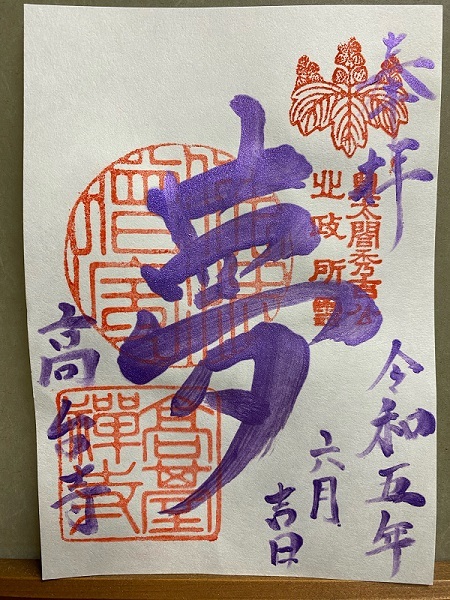 奉拝
豊太閤秀吉公
北政所
夢
令和五年
六月
吉日
高台寺
高台禅寺